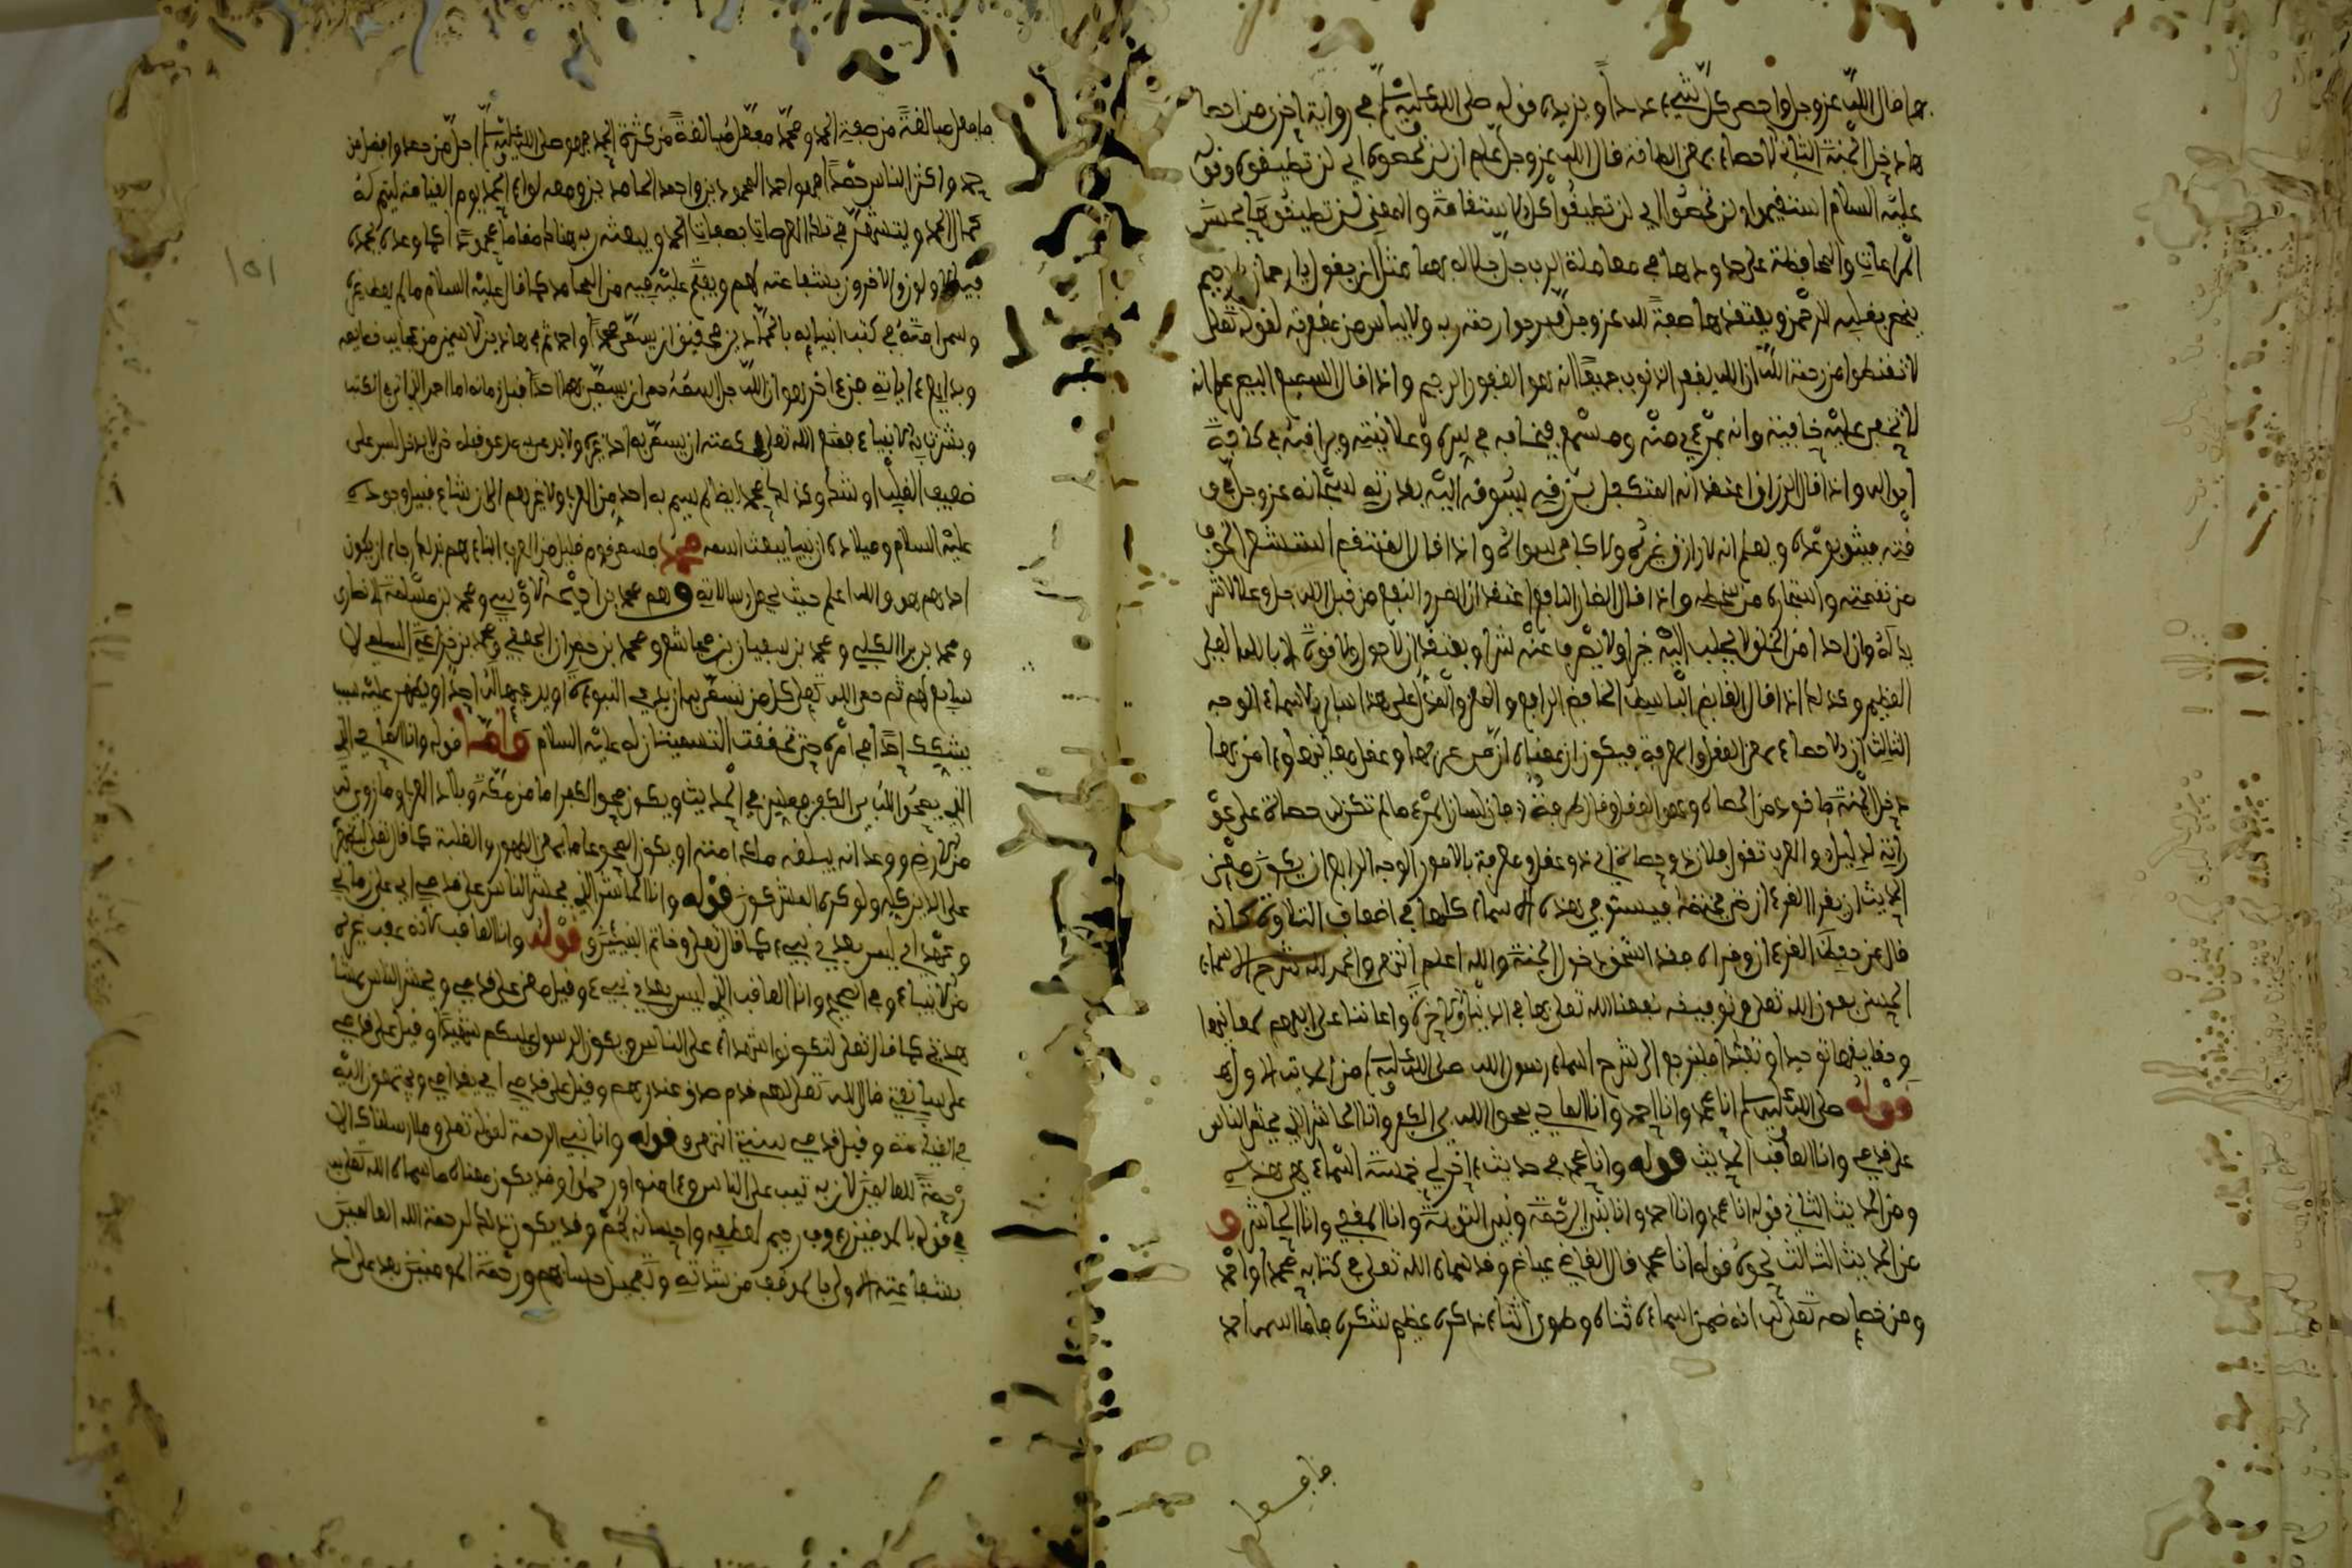 بها قال الله عز وجل واحصى كل شيء عددا ويزيده قوله صلى الله عليه وسلم في رواية اخرى من احصاها
دخل الجنة الثاني الاحصاء بمعنى الطاقة قال الله عز وجل علم ان لن تحصوه اي لن تطيقوه وقوله
عليه السلام استقيموا ولن تحصوا اي لن تطيقوا كل الاستقامة والمعنى لن تطيقوها بحسن
المراعات والمحافظة على حدودها في معاملة الرب جل جلاله بها مثل ان يقول يا رحمان يا رحيم
بقلبه الرحمن ويعتقدها صفة لله عز وجل فيرجوا رحمته ولا يياس من مغفرته لقوله تعلى
لا تقنطوا من رحمة الله ان الله يغفر الذنوب جميعا انه هو الغفور الرحيم واذا قال السميع البصير علم انه
لا تخفى عليه خافية وانه بمرءى منه ومسمع فيخافه في سره وعلانيته ويراقبه في كافة
احواله واذا قال الرزاق اعتقد انه المتكفل برزقه يسوقه اليه بقدرته سبحانه عز وجل
فيثق بوعده ويعلم انه لا رازق غيره ولا كافي سواه واذا قال المنتقم استشعر الخوف
من نقمته واستجاره من سخطه واذا قال الضار النافع اعتقد ان الضر والنفع من قبل الله جل وعلا لا شريك
له وان احدا من الخلق لا يجلب اليه خيرا ولا يصرف عنه شرا ويعتقد ان لا حول ولا قوة الا بالله العلي
العظيم وكذلك اذا قال القابض الباسط الخافض الرافع والمعز والمذل على هذا ساير الاسماء الوجه
الثالث ان الاحصاء بمعنى العقل والمعرفة فيكون ان معناه ان من عرفها وعقل معانيها وءامن بها
دخل الجنة ماخوذ من الحصاة وهي العقل قال طرفة وان لسان المرء ما لم تكن له حصاة على عوراته
لدليل والعرب تقول فلان ذو حصاة اي ذو عقل ومعرفة بالامور الوجه الرابع ان يكون معنى
الحديث ان يقرا القرءان حتى يختمه فيستوفي هذه الاسماء كلها في اضعاف التلاوة كانه
قال من حفظ القرءان وقراه فقد استحق دخول الجنة والله اعلم انتهى والحمد لله شرح الاسماء
الحسنى بعون الله تعلى وتوفيقه نفعنا الله تعلى بها في الدنيا والاخرة واعاننا على الفهم لمعانيها
وحقايقها توحيدا وتعبدا فلنرجع الى شرح اسماء رسول الله صلى الله عليه وسلم من الحديث الاول
قوله صلى الله عليه وسلم انا محمد وانا احمد وانا الماحي يمحوا الله بي الكفر وانا الحاشر الذي يحشر الناس
على قدمي وانا العاقب الحديث قوله وانا محمد في حديث ءاخر لي خمسة اسماء فهي هذه
ومن الحديث الثاني قوله انا محمد وانا احمد وانا نبي الرحمة ونبي التوبة وانا المقفي وانا الحاشر و
عن الحديث الثالث نحوه قوله انا محمد قال القاضي عياض وقد سماه الله تعلى في كتابه محمدا واحمد
ومن خصايصه تعلى له انه ضمن اسماءه ثناه وطوى اثناء ذكره عظيم شكره فاما اسمه احمد
فافعل
فافعل مبالغة من صفة الحمد ومحمد مفعل مبالغة من كثرة الحمد فهو صلى الله عليه وسلم اجل من حمد وافضل من
حمد واكثر الناس حمدا فهو احمد المحمودين واحمد الحامدين ومعه لواء الحمد يوم القيامة ليتم له
كمال الحمد ويتشهر في تلك العرصات بصفات الحمد ويبعثه ربه هناك مقاما محمودا كما وعده يحمده
فيه الاولون والاخرون بشفاعته لهم ويفتح عليه فيه من المحامد كما قال عليه السلام ما لم يعط غيره
وسمى امته في كتب انبيايه بالحمادين فحقيق ان يسمى محمدا واحمد ثم في هاذين الاسمين من عجايب خصايصه
وبدايع ءاياته فن ءاخر هو ان الله جل اسمه حمى ان يسمى بهما احد قبل زمانه اما احمد الذي اتى في الكتب
وبشرت به الانبياء فمنع الله تعلى بحكمته ان يسمى به احد غيره ولا يدعى به مدعو قبله حتى لا يدخل لبس على
ضعيف القلب او شك وكذلك محمد ايضا لم يسم به احد من العرب ولا غيرهم الى ان شاع قبيل وجوده
عليه السلام وميلاده ان نبيا يبعث اسمه محمد فسمى قوم قليل من العرب ابناءهم بذلك رجاء ان يكون
احدهم هو والله اعلم حيث يجعل رسالاته وهم محمد بن احيحة الاوسي ومحمد بن مسلمة الانصاري
ومحمد بن برا البكري ومحمد بن سفيان بن مجاشع ومحمد بن حمران الجعفي ومحمد بن خزاعي السلمي لا
سابع لهم ثم حمى الله تعلى كل من تسمى به ان يدعي النبوءة او يدعيها له احد او يظهر عليه سبب
يشكك احدا في امره حتى تحققت التسميتان له عليه السلام واما قوله وانا الماحي الذي
الذي يمحوا الله بي الكفر ففسر في الحديث ويكون محو الكفر اما من مكة وبلاد العرب وما زوي له
من الارض ووعد انه يبلغه ملك امته او يكون المحو عاما بمعنى الظهور والغلبة كما قال تعلى ليظهره
على الدين كله ولو كره المشركون قوله وانا الحاشر الذي يحشر الناس على قدمي اي على زماني
وعهدي اي ليس بعدي نبيء كما قال تعلى وخاتم النبيئين وقوله وانا العاقب لانه عقب غيره
من الانبياء وفي الصحيح وانا العاقب الذي ليس بعدي نبيء وقيل معنى على قدمي ويحشر الناس بمشاهدتي
كما قال تعلى لتكونوا شهداء على الناس ويكون الرسول عليكم شهيدا وقيل على قدمي
على سابقتي قال الله تعلى لهم قدم صدق عند ربهم وقيل على قدمي اي قدامي ويجتمعون اليه
في القيامة وقيل قدمي سنتي انتهى وقوله وانا نبي الرحمة لقوله تعلى وما ارسلناك الا
رحمة للعالمين لان به تيب على الناس وءامنوا ورحموا وقد يكون معناه ما سماه الله تعلى به
في قوله بالمومنين رءوف رحيم لعطفه واحسانه لهم وقد يكون ذلك لرحمة الله العالمين
بشفاعته الاولى بالموقف من شدته وتعجيل حسابهم ورحمة المومنين بعد على احد